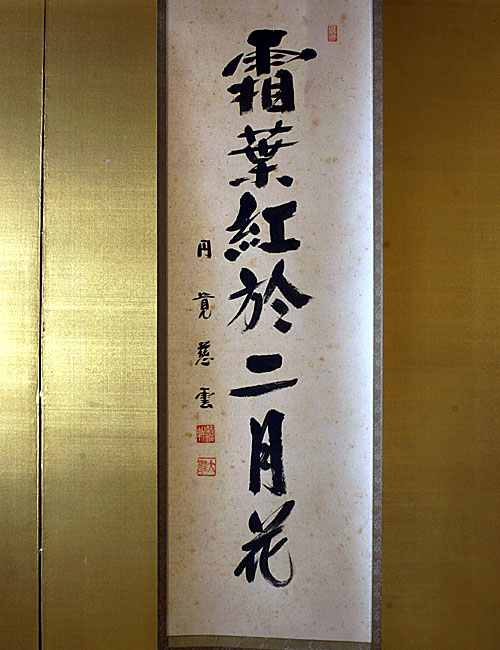 霜葉紅於二月花
円覚慈雲